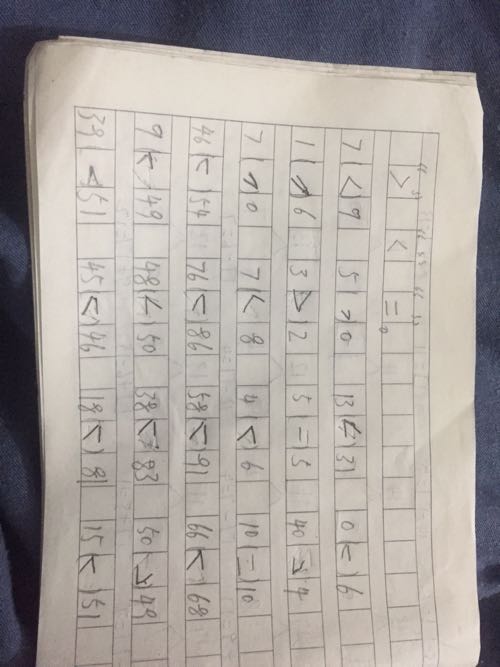 “>” “<” “=”。
7(<)9 5(>)0 13(<)31 0(<)6
1(>)6 3(>)2 5(=)5 40(>)4
7(>)0 7(<)8 4(<)6 10(=)10
46(<)54 76(<)86 58(<)91 66(<)68
9(<)49 48(<)50 38(<)83 50(>)49
39(<)51 45(<)46 18(<)81 15(<)51